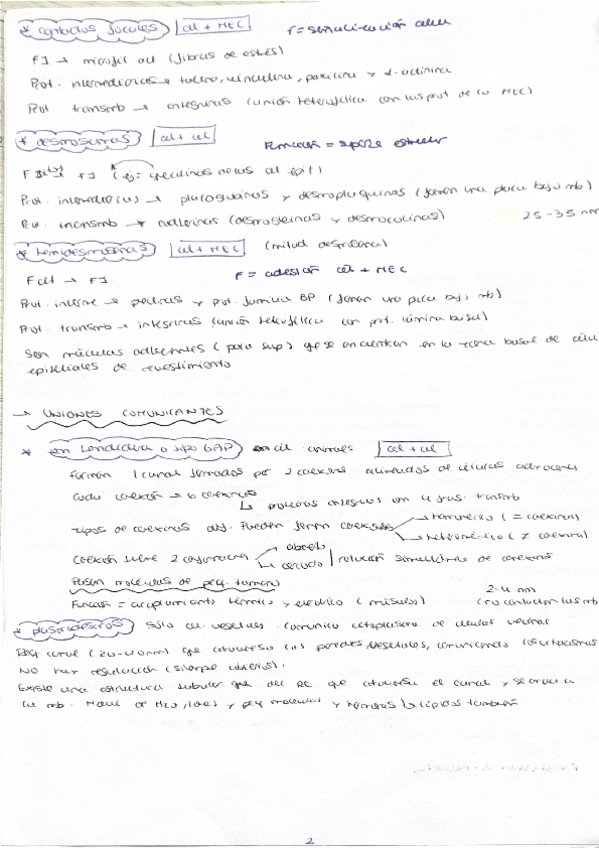 * contactos focales | cel + MEC | F = señalización celular
FI → microfil act (fibras de estrés)
Prot. intermediarias → talina, vinculina, paxilina y α-actinina
Prot. transmb → integrinas (unión heterofílica con las prot de la MEC)
* desmosomas | cel + cel | Función = soporte estructural
FI (ej = queratinas en cels del epit)
Prot. intermediarias → placoglobinas y desmoplaquinas (forman una placa bajo mb)
Prot. transmb → cadherinas (desmogleinas y desmocolinas) 25-35 nm
* hemidesmosomas | cel + MEC | (mitad desmosoma)
F cit → FI F = adesión cel + MEC
Prot. interme → plectinas y prot. BP (forman una placa bajo mb)
Prot. transmb → integrinas (unión heterofílica con prot. lámina basal)
Son máculas adherentes ( sup) q se encuentran en la zona basal de célu
epiteliales de revestimiento
→ UNIONES COMUNICANTES
* en hendidura o tipo GAP en cel animales | cel + cel |
Forman 1 canal formados por 2 conexones alineados de células adyacentes
Cada conexón → 6 conexinas
↳ proteínas integrales con 4 transmb
Tipos de conexinas Pueden formar conexones homomérico (= conexinas)
heteromérico (≠ conexina)
Conexón tiene 2 abierto
cerrado | rotación simultánea de conexinas
Pasan moléculas de peq. tamaño 2-4 nm
Función = acoplamiento y eléctrico (músculo) (no contactan las mb)
* plasmodesmos solo cel. vegetales. Comunica citoplasma de células vecinas
Peq canal (20-40 nm) que atraviesa las paredes vegetales, comunicando los citoplasmas
NO hay regulación (siempre abiertos).
Existe una estructura tubular que del RE que atraviesa el canal y se ancla a
la mb. de H2O, iones y peq moléculas y hormonas lípidos también
2